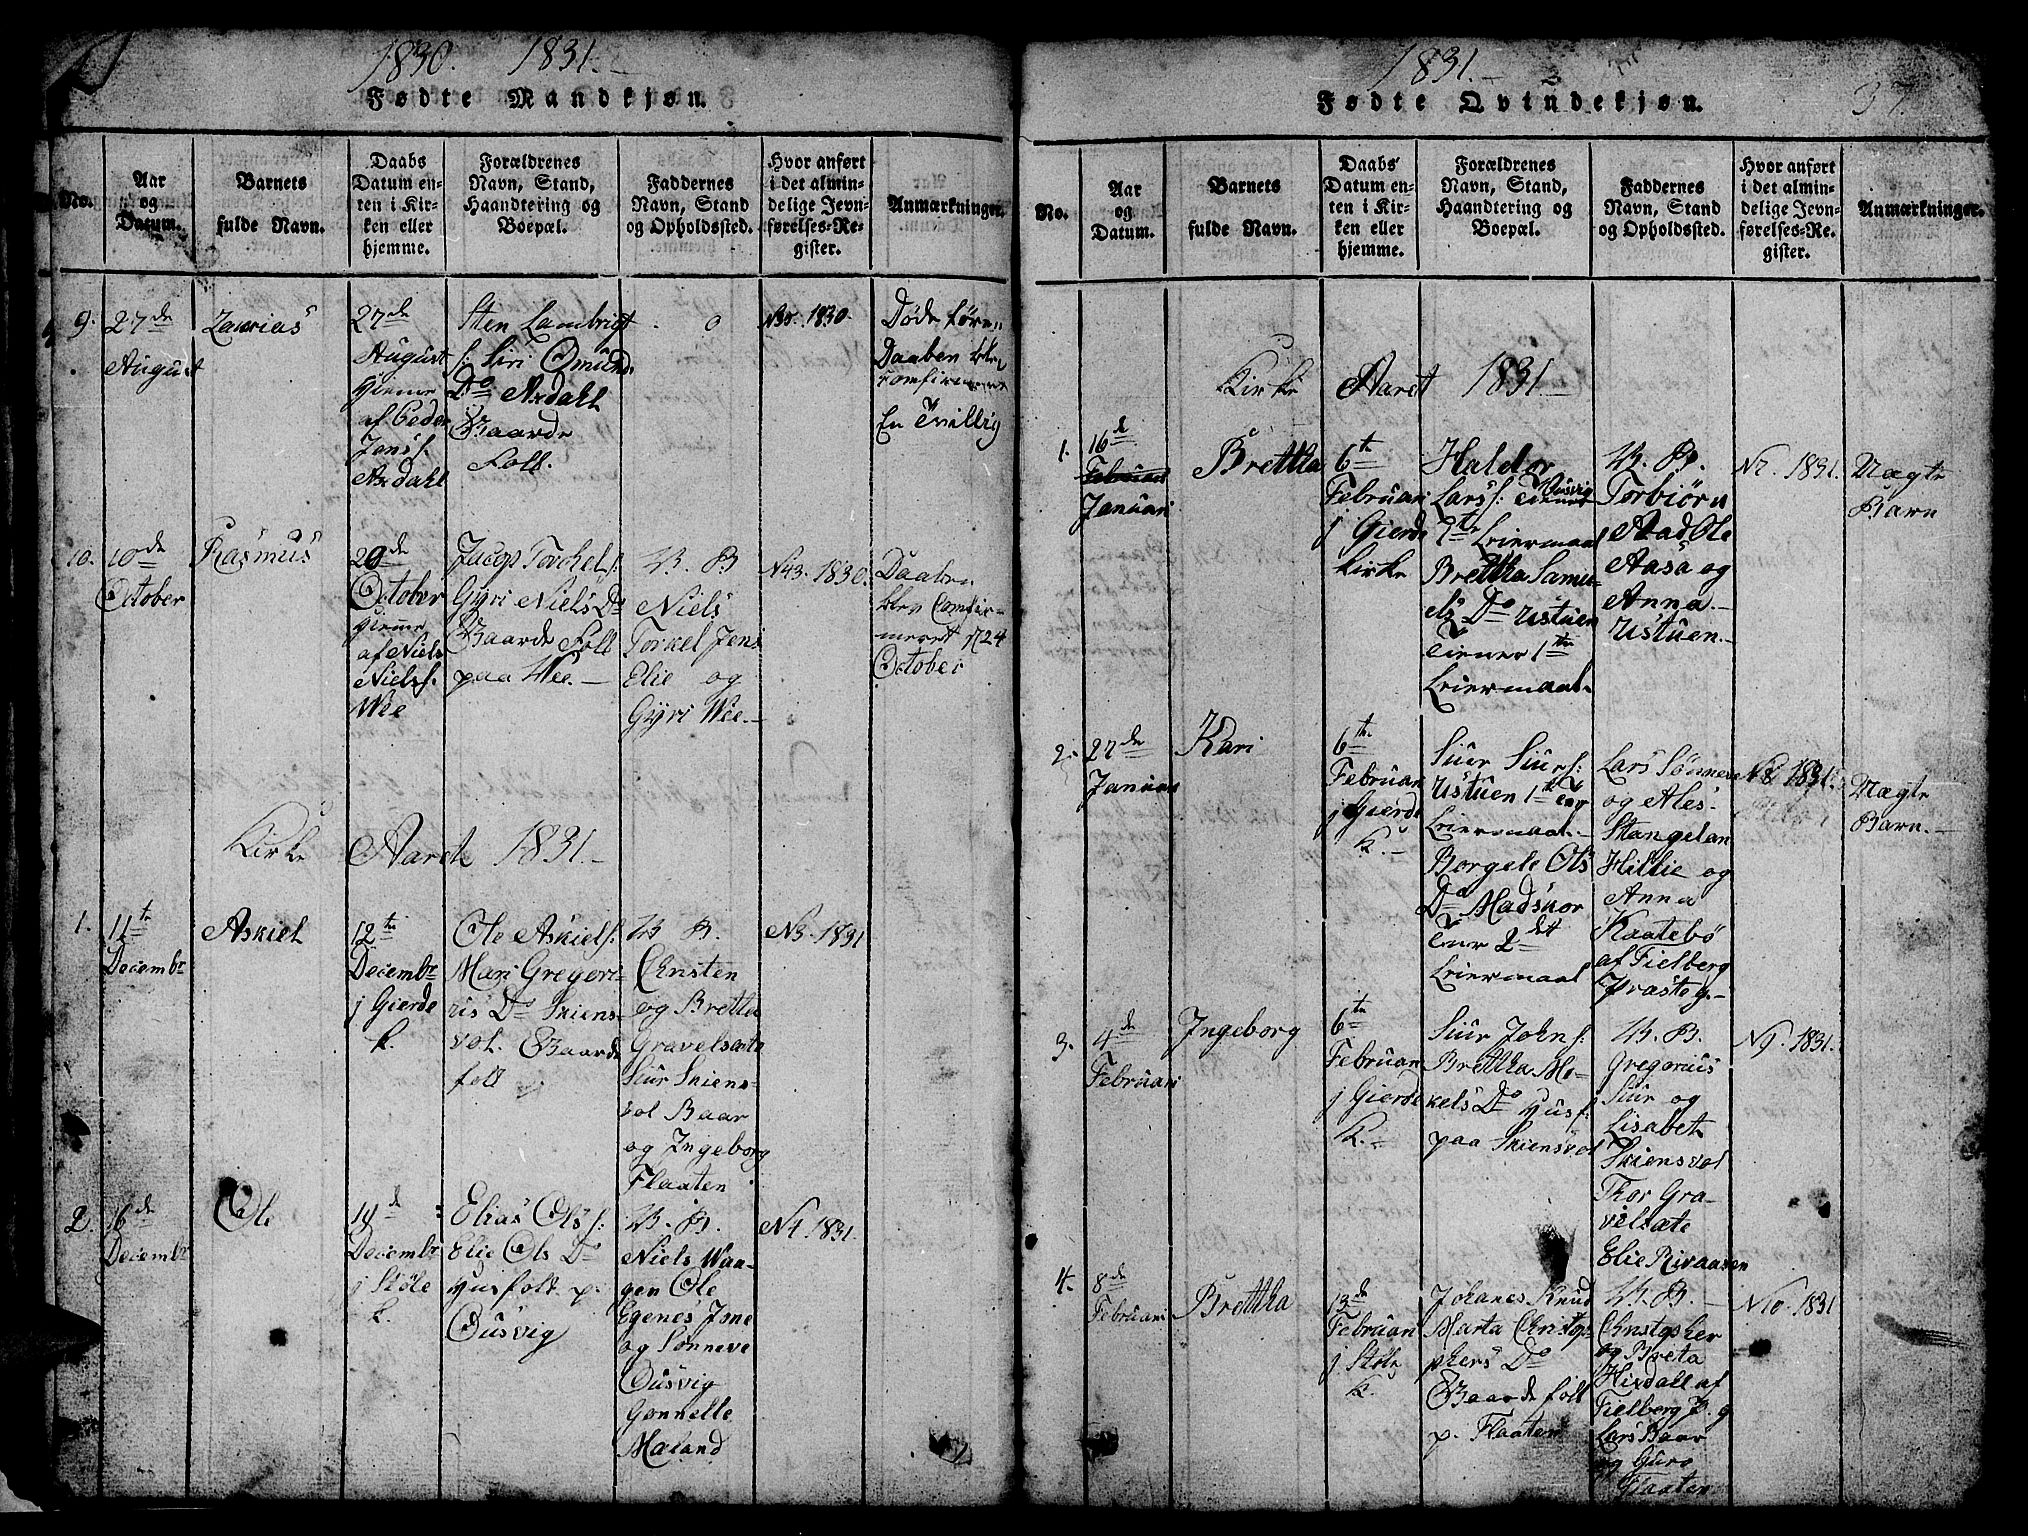 1830. 1831.
Fødte Mandkjøn.
No.
Aar
og
Datum.
Barnets
fulde Navn.
Daabs
Datum en-
ten i Kir-
ken eller
hjemme.
Forældrenes
Navn, Stand,
Haandtering og
Boepæl.
Faddernes
Navn, Stand
og Opholdssted.
Hvor anført
i det almin-
delige Jevn-
førelses-Re-
gister.
Anmærkninger.
9.
27de
August
Zacrias
27de
August
hieme
af Peder
Jens f.
Axdahl
Sten Lambrigt
f: Siri Omund
Do Axdahl
Baarde
Foll.
0
1830
Døde føre
Daaben
En Tvillig
10.
10de
October
Rasmus
20de
October
hieme
af Niels
Niels f.
Wee
Jacop Torchels f.
Gÿri Niels Do
Baarde Foll
paa Wee.
B. B
Niels
Torkel Jens
Elie og
Gÿri Wee.
N43. 1830.
Daaben
blev Comfir-
meret 24
October
Kirke Aaret 1831.
1.
11te
Decembr
Askiel
12te
Decembr
j Gierde
k.
Ole Askiels f.
Mari Gregori-
us Do Skiens-
vol. Baarde
foll
B. B.
Christen
og Bretta
Gravelsæte
Siur Skiens-
vol Baar
og Ingeborg
Flaaten
N3. 1831
2.
16de
Decembr
Ole
19de
Decembr
j Støle
k.
Elias Ols f:
Elie Ols Do
Husfolk p.
Øusvig
B. B.
Niels Waa-
gen Ole
Egenes Jone
og Sønneve
Øusvig
Gonnelle
Mæland
N4. 1831.
1831.
37.
Fødte Qvindekjøn.
No.
Aar
og
Datum.
Barnets
fulde Navn.
Daabs
Datum en-
ten i Kir-
ken eller
hjemme.
Forældrenes
Navn, Stand,
Haandtering og
Boepæl.
Faddernes
Navn, Stand
og Opholdssted.
Hvor anført
i det almin-
delige Jevn-
førelses-Re-
gister.
Anmærkninger.
Kirke Aaret 1831
1.
16de
Februari
Januari
Brettha
6te
Februari
j Gierde
Kirke
Haldor
Lars f: Øusvig
Leiermaal
Brettha Samu-
els Do Ustuen
Tiener 1te
Leiermaal.
B. B.
Torbiørn
Aad Ole
Aasa og
Anna
Ustuen.
N7. 1831.
Uægte
Barn
2.
27de
Januari
Kari
6te
Februari
j Gierde
K.
Siur Siurs f:
Ustuen 1te
Leiermaal
Borgele Ols
Do Madsnor
2det
Leiermaal
Lars Sønneve
og Ales
Stangelan
Hillie og
Anna
Kaatebø
af Fielberg
Præsteg.
N8 1831.
Uægte
Barn.
3.
4de
Februari
Ingeborg
6te
Februari
j Gierde
K.
Siur Johns f:
Brettha Mi-
kels Do Husf:
paa Skiensvol
B. B.
Gregorius
Siur og
Lisabet
Skiensvol
Thor Gra-
velsæte
Elie Rivaasen
N9. 1831.
4.
8de
Februari
Brettha
13de
Februari
j Støle
K.
Johanes Knud
Marta Christop-
hers Do
Baarde foll
p. Flaaten
B. B.
Christopher
og Breta
Hixdall af
Fielberg P. g
Lars Baar
og Guro
Flaaten
N10. 1831